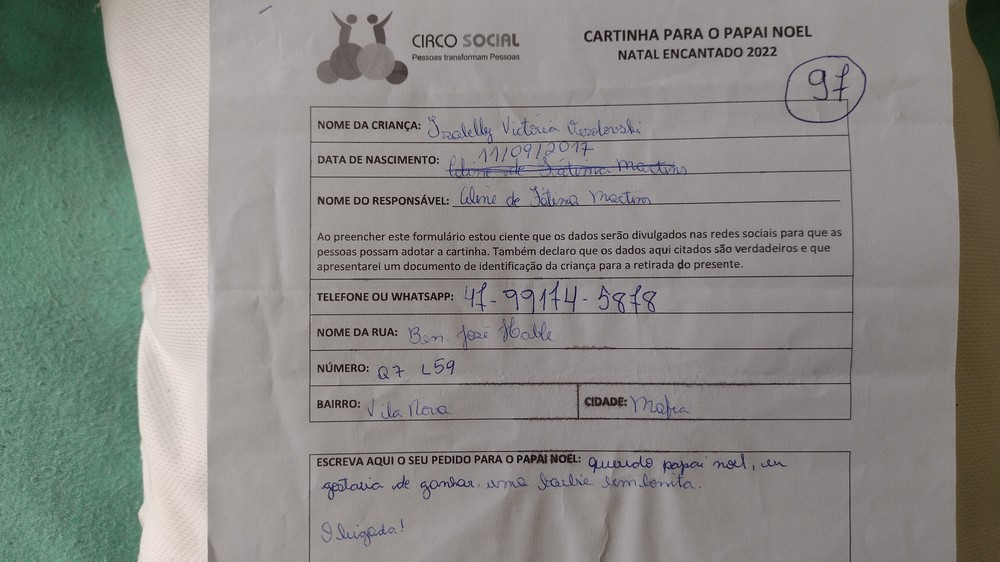 CIRCO SOCIAL
Pessoas transformam Pessoas
CARTINHA PARA O PAPAI NOEL
NATAL ENCANTADO 2022
97
NOME DA CRIANÇA: Izabelly Victória
DATA DE NASCIMENTO: 11/09/2017
Aline de Fátima Martins
NOME DO RESPONSÁVEL: Aline de Fátima Martins
Ao preencher este formulário estou ciente que os dados serão divulgados nas redes sociais para que as
pessoas possam adotar a cartinha. Também declaro que os dados aqui citados são verdadeiros e que
apresentarei um documento de identificação da criança para a retirada do presente.
TELEFONE OU WHATSAPP: 47-99174-5878
NOME DA RUA: Ben José Hable
NÚMERO: Q7 L59
BAIRRO: Vila Nova
CIDADE: Mafra
ESCREVA AQUI O SEU PEDIDO PARA O PAPAI NOEL: querido papai noel, eu
gostaria de ganhar uma barbie bem bonita.
Obrigada!